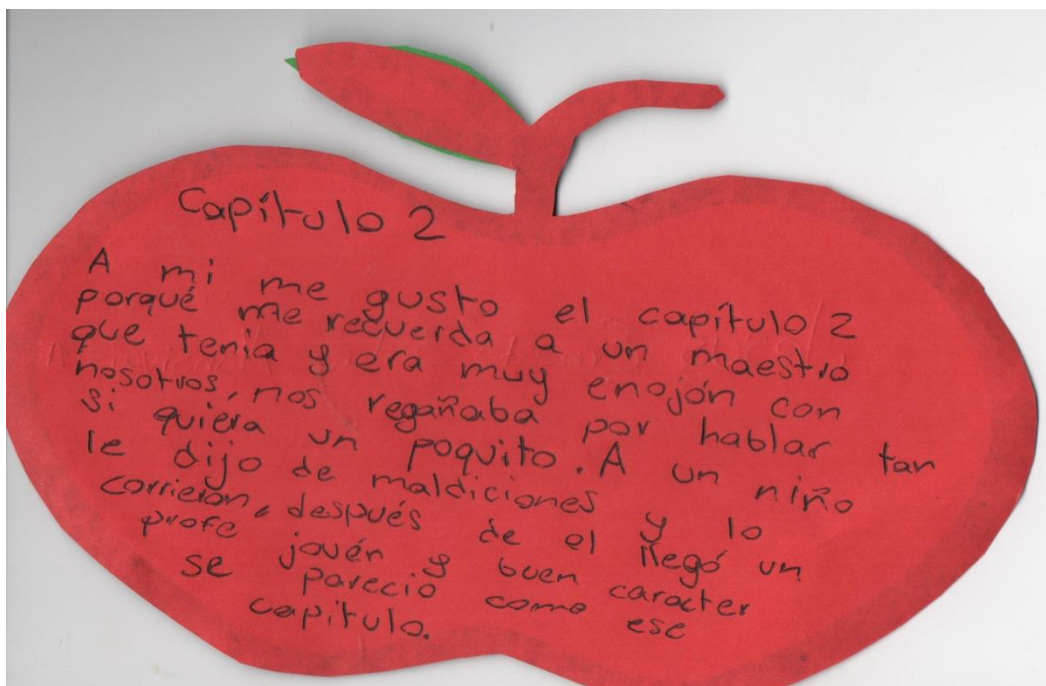 Capítulo 2
A mi me gusto el capítulo 2
porqué me recuerda a un maestro
que tenia y era muy enojón con
nosotros, nos regañaba por hablar tan
si quiera un poquito. A un niño
le dijo de maldiciones y lo
corrieron, después de el llegó un
profe jovén y buen caracter
se parecio como ese
capitulo.